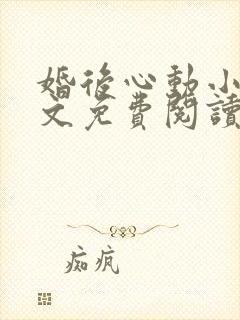 婚後心動小
文免費閱讀
痴瘋